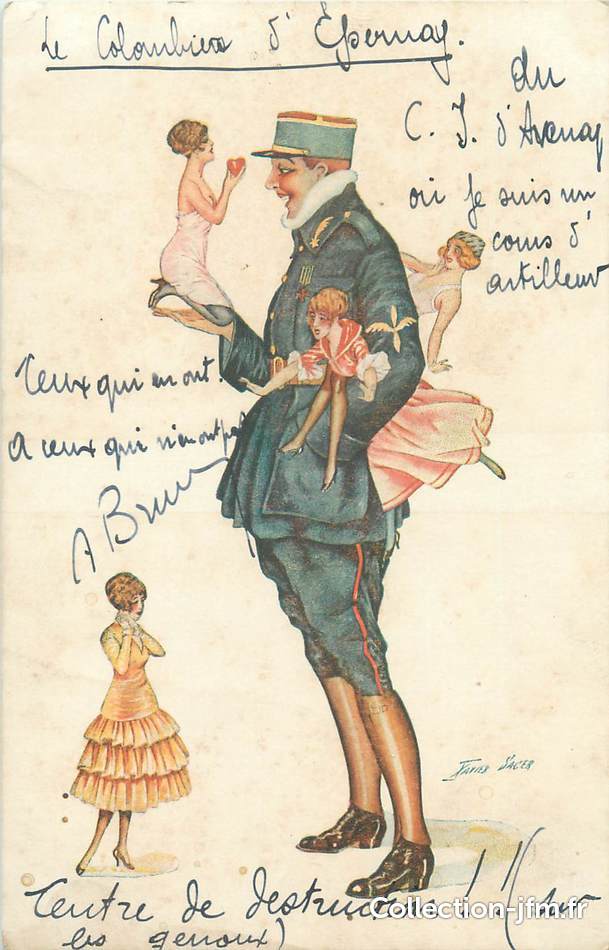 Le Colombier d'Épernay.
du
C. I. d'Avenay
où je suis un
cours d'
artilleur
Ceux qui en ont.
A ceux qui n'en ont pas
A Brun
XAVIER SAGER
Centre de destruction !! (sur
les genoux)
Collection-jfm.fr